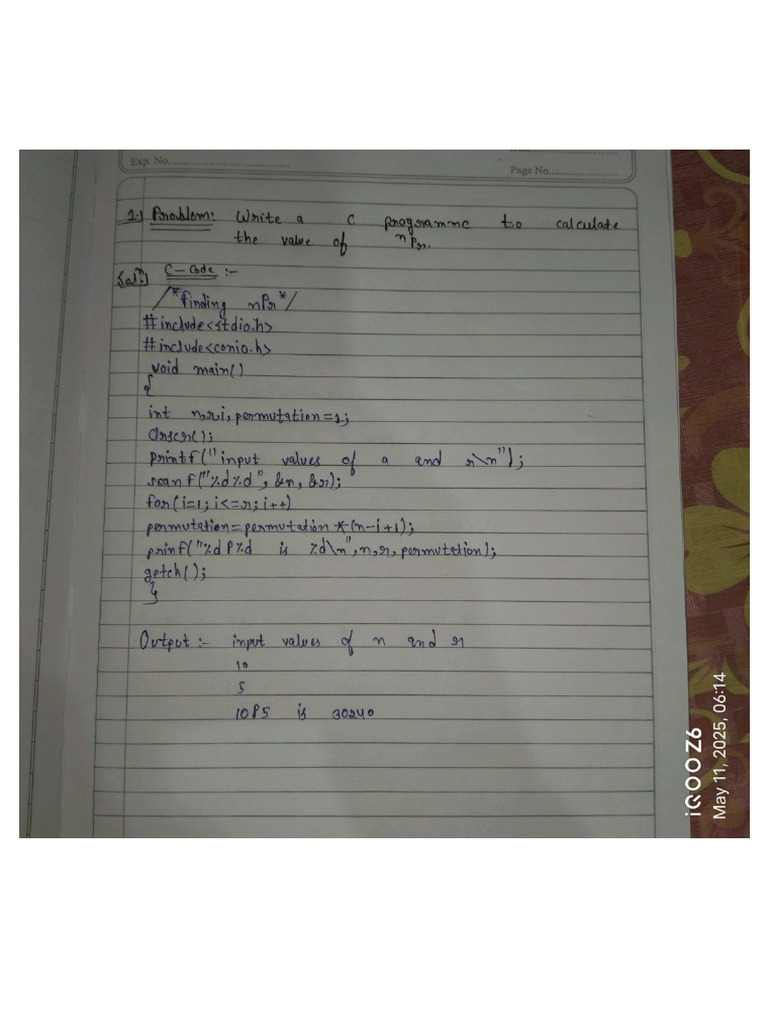 Exp. No.
Page No.
1.) Problem: Write a C programme to calculate
the value of nPr.
Solⁿ) C-Code :-
/*Finding nPr*/
#include<stdio.h>
#include<conio.h>
void main()
{
int n,r,i,permutation=1;
clrscr();
printf("input values of a and r\n");
scanf("%d%d", &n, &r);
for(i=1; i<=r; i++)
permutation=permutation*(n-i+1);
prinf("%d P%d is %d\n",n,r,permutation);
getch();
}
Output :- input values of n and r
10
5
10P5 is 30240
iQOO Z6
May 11, 2025, 06:14